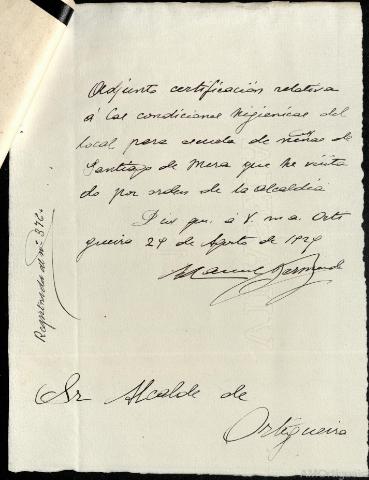 Adjunto certificación relativa
á las condiciones higienicas del
local para escuela de niñas de
Santiago de Mera que he visita
do por orden de la alcaldia
Dios gu. a V. m. a. Orti
gueira 29 de Agosto de 1929
Manuel
Registrada al nº 376.
Sr Alcalde de
Ortigueira